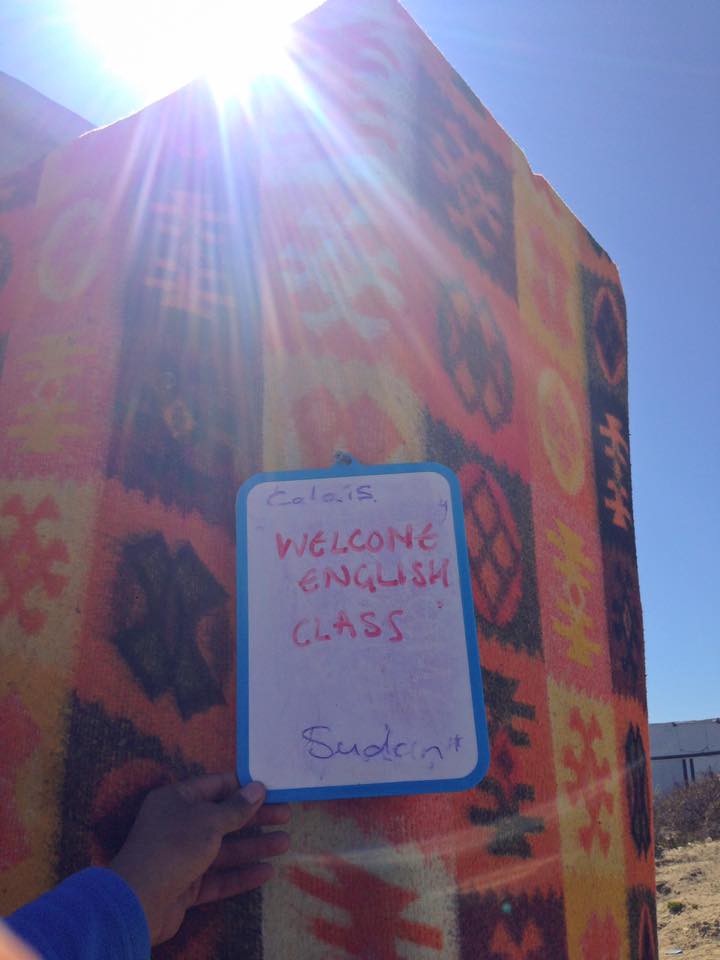 Calais.
WELCOME
ENGLISH
CLASS
Sudan"